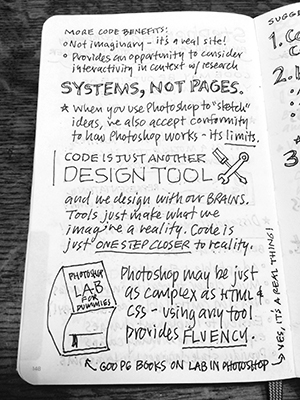 MORE CODE BENEFITS:
Not imaginary - it's a real site!
Provides an opportunity to consider
interactivity in context w/ research
SYSTEMS, NOT PAGES.
★ When you use Photoshop to "sketch"
ideas, we also accept conformity
to how Photoshop works - its limits.
CODE IS JUST ANOTHER
DESIGN TOOL
and we design with our BRAINS.
Tools just make what we
imagine a reality. Code is
just ONE STEP CLOSER to reality.
PHOTOSHOP
LAB
FOR
DUMMIES
Photoshop may be just
as complex as HTML &
CSS - using any tool
provides FLUENCY.
← 600 PG BOOKS ON LAB IN PHOTOSHOP →
YES, IT'S A REAL THING!
SUGG
1.
2.
3